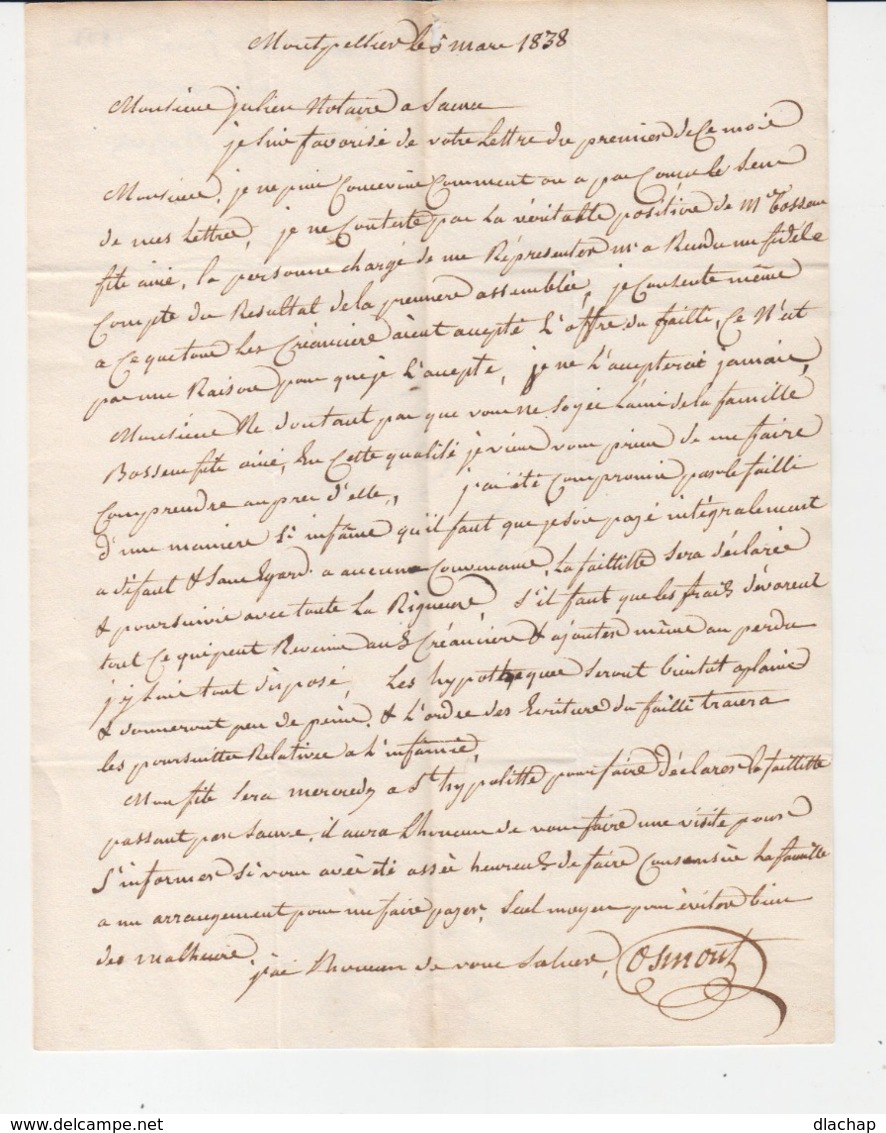 Montpellier le 5 mars 1838
Monsieur Julien Notaire a Sauve
je suis favorisé de votre Lettre du premier de Ce mois
Monsieur, je ne puis Concevoir Comment on a pas Conçu le Sens
de mes Lettres, je ne Conteste pas La véritable position de Mr
fils ainé, la personne chargé de me Réprésenter m'a Rendu un fidéle
Compte du Résultat de la premiere assemblée, je Consents même
a Ce que tous Les Créanciers aient acepté L'offre du failli, Ce N'est
pas une Raison pour que je L'acepte, je ne L'acepterai jamais,
Monsieur Ne doutant pas que vous ne Soyés L'ami de la famille
fils ainé, En Cette qualité je viens vous prier de me faire
Comprendre auprès d'elle, j'ai été Compromis par le failli
d'une maniere Si infâme qu'il faut que je sois payé intégralement
a défaut & Sans Egard a aucune Convenance, La faillitte Sera déclarée
& poursuivie avec toute La Rigueur, S'il faut que les fraix dévorent
tout Ce qui peut Revenir aux Créanciers & ajouter même au perdu
j'y Suis tout disposé, Les hypotheques Seront bientot aplanis
& donneront peu de peine, & L'ordre des Ecritures du failli tracera
les poursuittes Relatives a L'infâmie,
Mon fils Sera mercredy a St hypolitte pour faire Déclarer la faillitte
passant par Sauve, il aura L'honneur de vous faire une visite pour
S'informer Si vous avés été assés heureux de faire Consentir La famille
a un arrangement pour me faire payer, Seul moyen pour éviter bien
des malheurs,
j'ai L'honneur de vous Saluer, Osmont
delcampe.net
dlachap